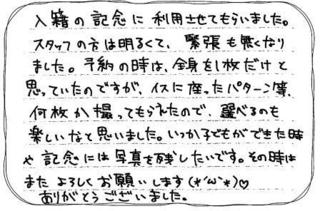 入籍の記念に利用させてもらいました。
スタッフの方は明るくて、緊張も無くなり
ました。予約の時は、全身を1枚だけと
思っていたのですが、イスに座ったパターン等、
何枚か撮ってもらえたので、選べるのも
楽しいなと思いました。いつか子どもができた時
や記念には写真を残したいです。その時は
またよろしくお願いします(*'ω'*)♡
ありがとうございました。